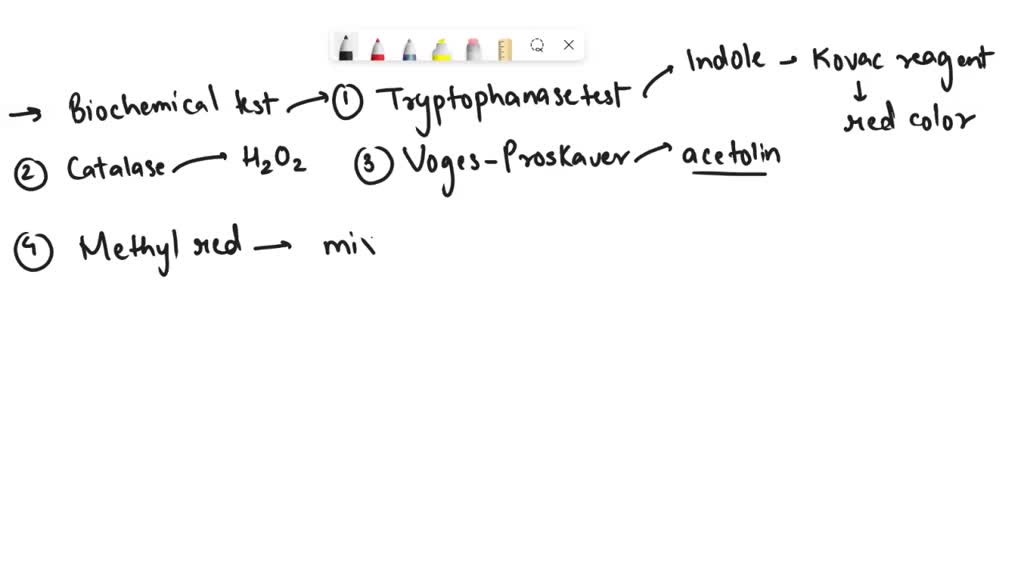 Indole → Kovac reagent
→ Biochemical test → ① Tryptophanase test
↓
red color
② Catalase → H₂O₂ ③ Voges-Proskaver → acetolin
④ Methyl red → mix